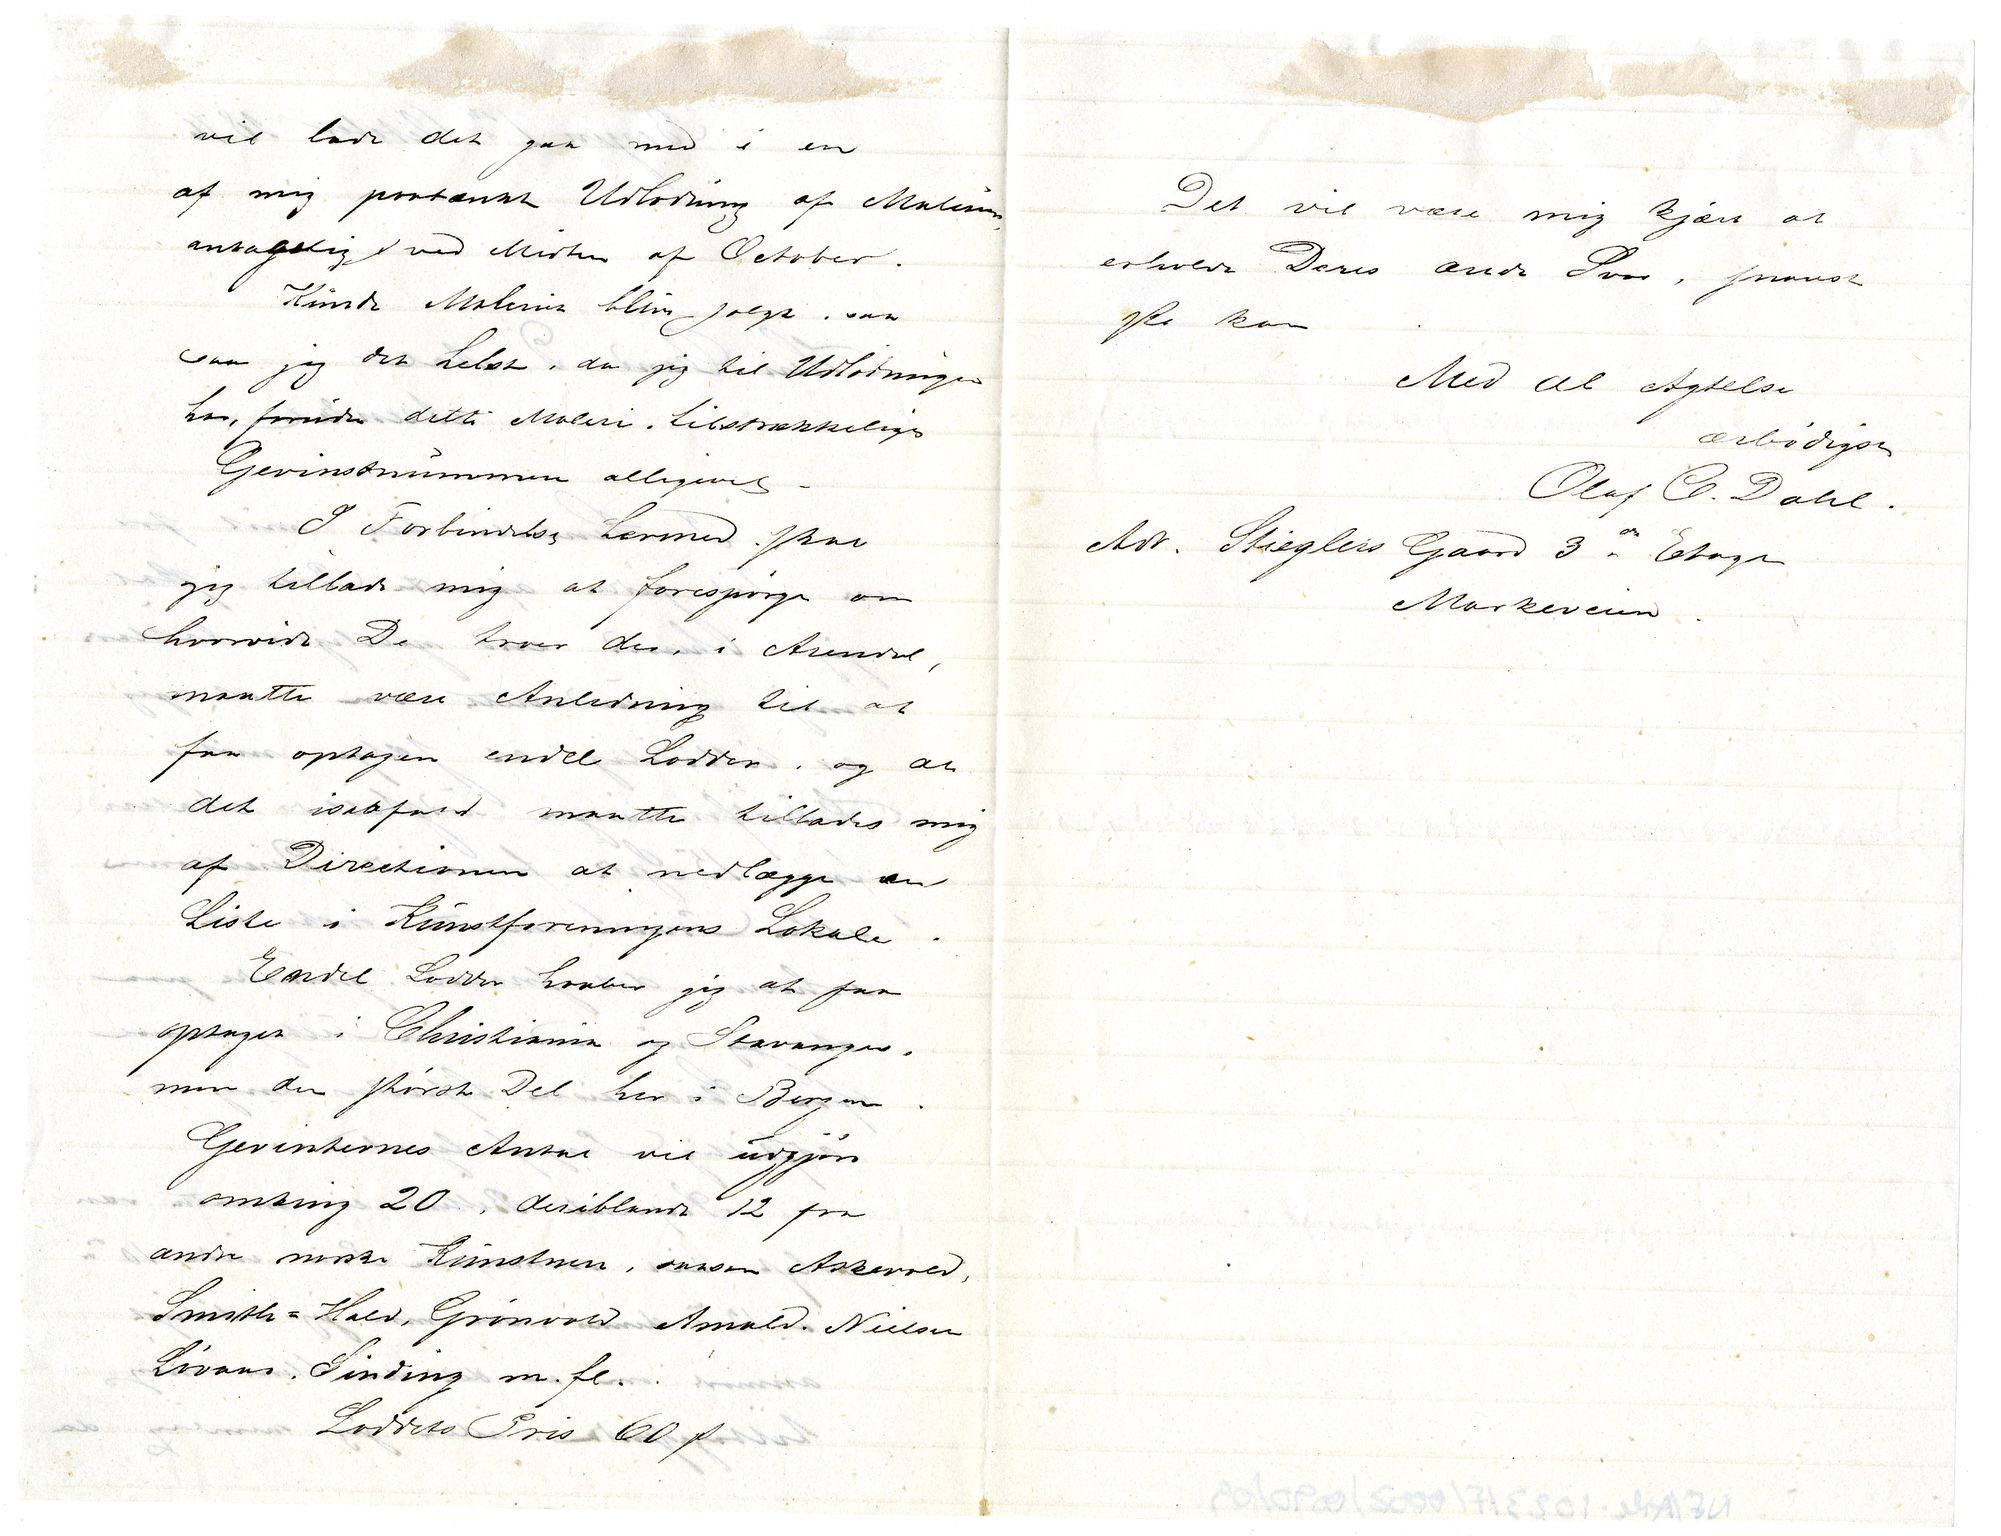 vil lade det gaa med i en
af mig paatænkt Udlodning af Malerier,
antagelig ved Midten af October.
Kunde Maleriet blive solgt, saa
saa jeg det helst, da jeg til Udlodningen
har, foruden dette Maleri, tilstrækkelige
Gevinstnummere alligevel.
I Forbindelse hermed skal
jeg tillade mig at forespørge om
hvorvidt De troer der, i Arendal,
maatte være Anledning til at
faa optagen endel Lodder, og at
det isaafald maatte tillades mig
af Directionen at nedlægge en
Liste i Kunstforeningens Lokale.
Endel Lodder haaber jeg at faa
optaget i Christiania og Stavanger,
men den største Del her i Bergen.
Gevinternes Antal vil udgjøre
omkring 20, deriblandt 12 fra
andre norske Kunstnere, saasom Askevold,
Smith=Hald, Grönvold Amald. Nielsen
Løvaas, Sinding m. fl.
Loddets Pris 60 ø
Det vil være mig kjært at
erholde Deres ærede Svar, snarest
ske kan
Med al Agtelse
ærbödigst
Olaf C. Dahl.
Adr. Stieglers Gaard 3die Etage
Markeveien.